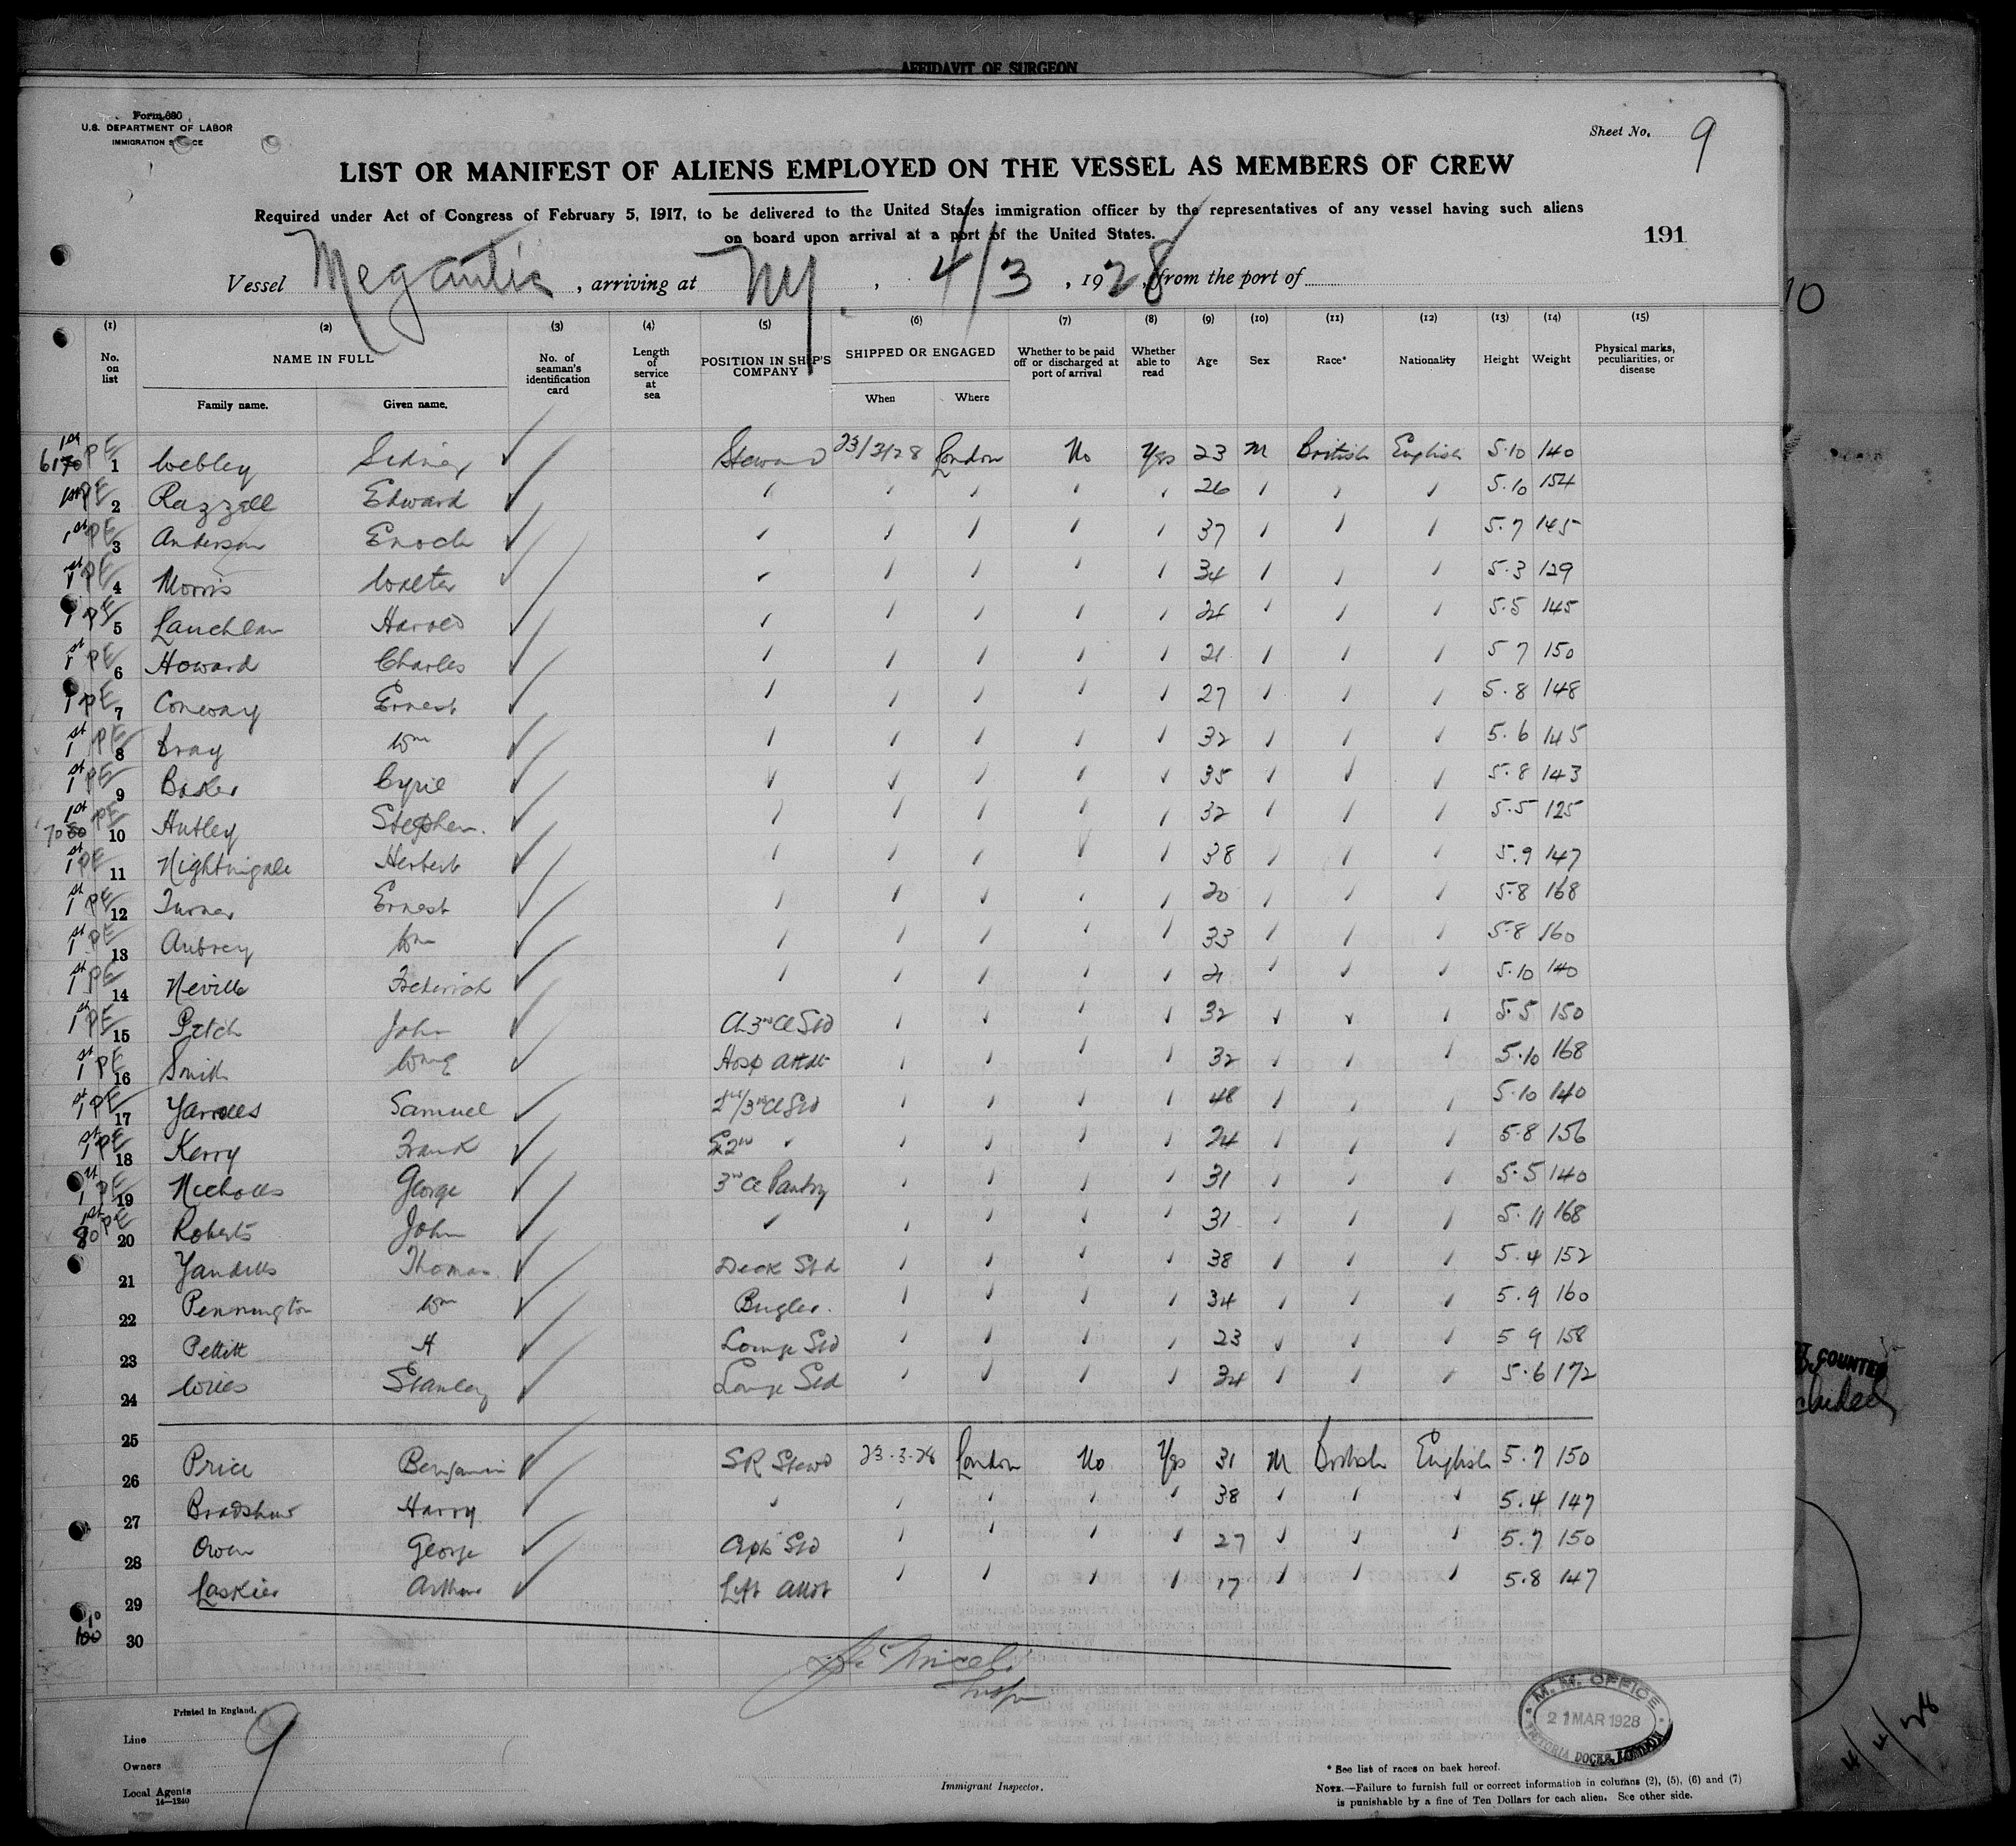 AFFIDAVIT OF SURGEON
Form 680
U.S. DEPARTMENT OF LABOR
IMMIGRATION SERVICE
Sheet No. 9
LIST OR MANIFEST OF ALIENS EMPLOYED ON THE VESSEL AS MEMBERS OF CREW
Required under Act of Congress of February 5, 1917, to be delivered to the United States immigration officer by the representatives of any vessel having such aliens
on board upon arrival at a port of the United States.
191
Vessel Megantic, arriving at NY., 4/3, 1928, from the port of
(1) (2) (3) (4) (5) (6) (7) (8) (9) (10) (11) (12) (13) (14) (15)
No. on list NAME IN FULL Family name. Given name. No. of seaman's identification card Length of service at sea POSITION IN SHIP'S COMPANY SHIPPED OR ENGAGED When Where Whether to be paid off or discharged at port of arrival Whether able to read Age Sex Race* Nationality Height Weight Physical marks, peculiarities, or disease
1st PE 1 Webley Sidney ✓ Steward 23/3/28 London No Yes 23 M British English 5.10 140
1st PE 2 Razzell Edward ✓ 26 5.10 154
1st PE 3 Anderson Enoch ✓ 37 5.7 145
1st PE 4 Morris Walter ✓ 34 5.3 129
1 PE 5 Lauchlan Harold ✓ 24 5.5 145
1st PE 6 Howard Charles ✓ 21 5 7 150
1 PE 7 Conway Ernest ✓ 27 5.8 148
1st PE 8 Bray Wm ✓ 32 5.6 145
1st PE 9 Baker Cyril ✓ 35 5.8 143
1st PE 10 Hutley Stephen. ✓ 32 5.5 125
1st PE 11 Nightingale Herbert ✓ 38 5.9 147
1st PE 12 Turner Ernest ✓ 20 5.8 168
1st PE 13 Aubrey Wm ✓ 33 5.8 160
1st PE 14 Neville Frederick ✓ 21 5.10 140
1st PE 15 Petch John ✓ Ch 3rd Cl Std 32 5.5 150
1st PE 16 Smith ✓ Hosp Attdt 32 5.10 168
1st PE 17 Samuel ✓ 3rd Cl Std 48 5.10 140
1st PE 18 Kerry Frank ✓ 24 5.8 156
1st PE 19 Nicholls George ✓ 3rd Cl Pantry 31 5.5 140
1st PE 80 20 Roberts John ✓ 31 5.11 168
21 Yandells Thomas ✓ Deck Std 38 5.4 152
22 Pennington Wm ✓ Bugler. 34 5.9 160
23 Pettitt H ✓ Lounge Std 23 5 9 158
24 Stanley ✓ Lounge Std 34 5.6 172
25
26 Price Benjamin ✓ SR Stewd 23.3.28 London No Yes 31 M British English 5.7 150
27 Bradshaw Harry ✓ 38 5.4 147
28 Owen George ✓ Std 27 5.7 150
29 Laskier Arthur ✓ Lift Attdt 17 5.8 147
30
Printed in England.
9
Line
Owners
Local Agents
14—1240
Immigrant Inspector.
M. M. OFFICE
21 MAR 1928
VICTORIA DOCKS, LONDON
* See list of races on back hereof.
NOTE.—Failure to furnish full or correct information in columns (2), (5), (6) and (7)
is punishable by a fine of Ten Dollars for each alien. See other side.
10
COUNTED
4/4/28